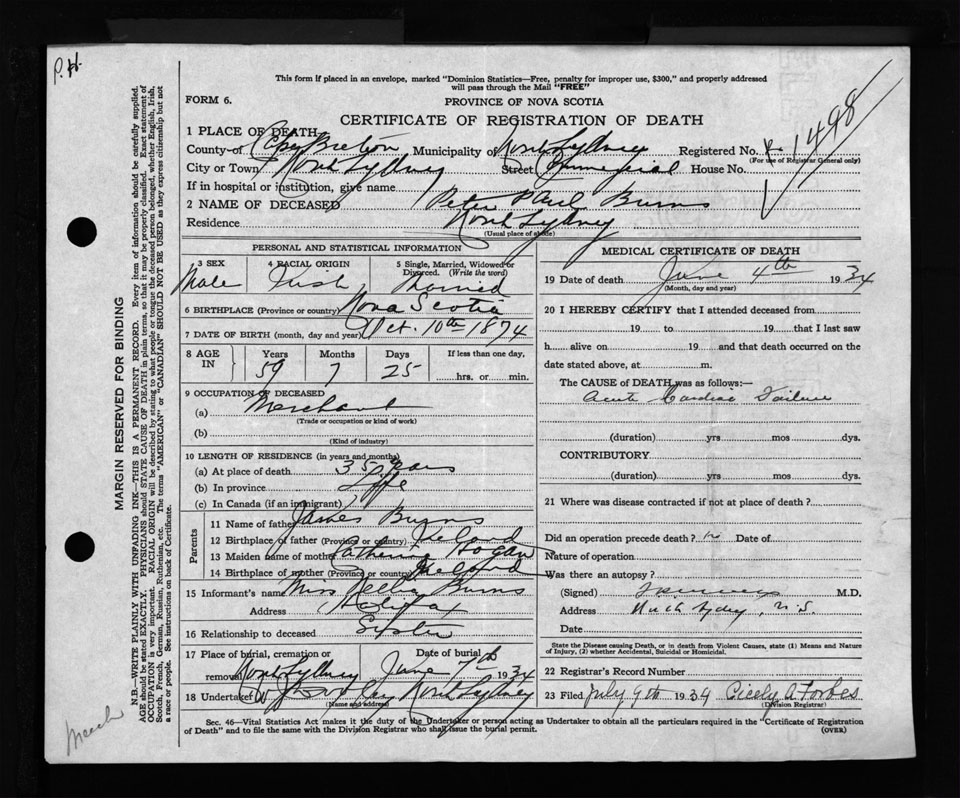 P.H.
This form if placed in an envelope, marked "Dominion Statistics—Free, penalty for improper use, $300," and properly addressed
will pass through the Mail "FREE"
FORM 6.
PROVINCE OF NOVA SCOTIA
CERTIFICATE OF REGISTRATION OF DEATH
1498
1 PLACE OF DEATH
County of Cape Breton Municipality of North Sydney Registered No.
(For use of Registrar General only)
City or Town North Sydney Street Commercial House No.
If in hospital or institution, give name
2 NAME OF DECEASED Peter Paul Burns
Residence North Sydney
(Usual place of abode)
PERSONAL AND STATISTICAL INFORMATION
3 SEX 4 RACIAL ORIGIN 5 Single, Married, Widowed or
Divorced. (Write the word)
Male Irish Married
6 BIRTHPLACE (Province or country) Nova Scotia
7 DATE OF BIRTH (month, day and year) Oct. 10th 1874
8 AGE IN Years Months Days If less than one day,
59 7 25 hrs. or min.
9 OCCUPATION OF DECEASED
(a) Merchant
(Trade or occupation or kind of work)
(b)
(Kind of industry)
10 LENGTH OF RESIDENCE (in years and months)
(a) At place of death 35 years
(b) In province Life
(c) In Canada (if an immigrant)
Parents
11 Name of father James Burns
12 Birthplace of father (Province or country) Ireland
13 Maiden name of mother Catherine Hogan
14 Birthplace of mother (Province or country) Ireland
15 Informant's name Miss Nella Burns
Address Halifax
16 Relationship to deceased Sister
17 Place of burial, cremation or Date of burial
removal North Sydney June 7th 1934
18 Undertaker North Sydney
(Name and address)
MEDICAL CERTIFICATE OF DEATH
19 Date of death June 4th 1934
(Month, day and year)
20 I HEREBY CERTIFY that I attended deceased from
19 to 19 that I last saw
h alive on 19 and that death occurred on the
date stated above, at m.
The CAUSE of DEATH was as follows:—
Acute Cardiac Failure
(duration) yrs mos dys.
CONTRIBUTORY
(duration) yrs mos dys.
21 Where was disease contracted if not at place of death?
Did an operation precede death? no Date of
Nature of operation
Was there an autopsy?
(Signed) M.D.
Address North Sydney, N.S.
Date
State the Disease causing Death, or in death from Violent Causes, state (1) Means and Nature
of Injury, (2) whether Accidental, Suicidal or Homicidal.
22 Registrar's Record Number
23 Filed July 9th 1934 Cicely A Forbes
(Division Registrar)
Sec. 46—Vital Statistics Act makes it the duty of the Undertaker or person acting as Undertaker to obtain all the particulars required in the "Certificate of Registration
of Death" and to file the same with the Division Registrar who shall issue the burial permit. (OVER)
MARGIN RESERVED FOR BINDING
N.B.—WRITE PLAINLY WITH UNFADING INK—THIS IS A PERMANENT RECORD. Every item of information should be carefully supplied.
AGE should be stated EXACTLY. PHYSICIANS should STATE CAUSE OF DEATH in plain terms, so that it may be properly classified. Exact statement of
OCCUPATION is very important. RACIAL ORIGIN will be described by stating to what people or tongue the deceased person belonged, whether English, Irish,
Scotch, French, German, Russian, Ruthenian, etc. The terms "AMERICAN" or "CANADIAN" SHOULD NOT BE USED as they express citizenship but not
a race or people. See instructions on back of Certificate.